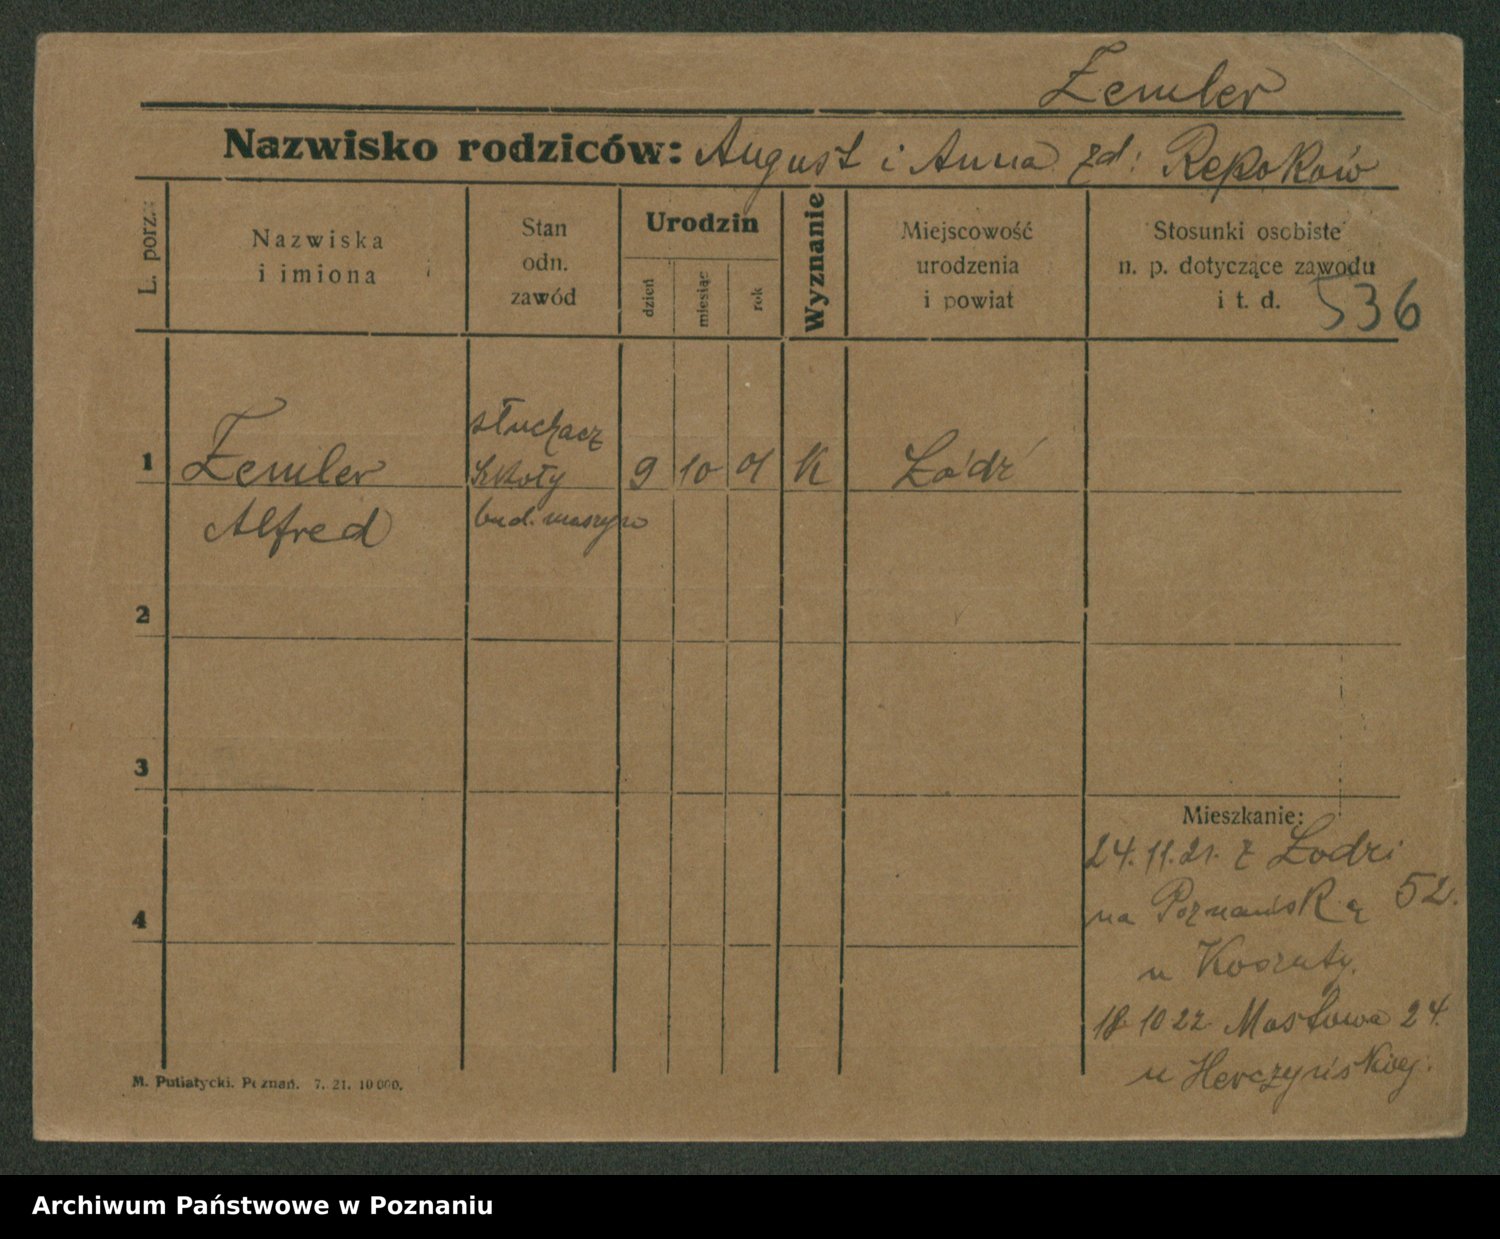 Zemler
Nazwisko rodziców: August i Anna zd: Repoków
L. porz.
Nazwiska
i imiona
Stan
odn.
zawód
Urodzin
dzień
miesiąc
rok
Wyznanie
Miejscowość
urodzenia
i powiat
Stosunki osobiste
n. p. dotyczące zawodu
i t. d.
536
1 Zemler słuchacz szkoły 9 10 01 K Łódź
Alfred bud. maszyn
2
3
4
Mieszkanie:
24.11.21. z Łodzi
na Poznańską 52.
u Koszuty.
18 10 22 Mostowa 24.
u Herczyńskiej.
M. Putiatycki. Poznań. 7. 21. 10000.
Archiwum Państwowe w Poznaniu